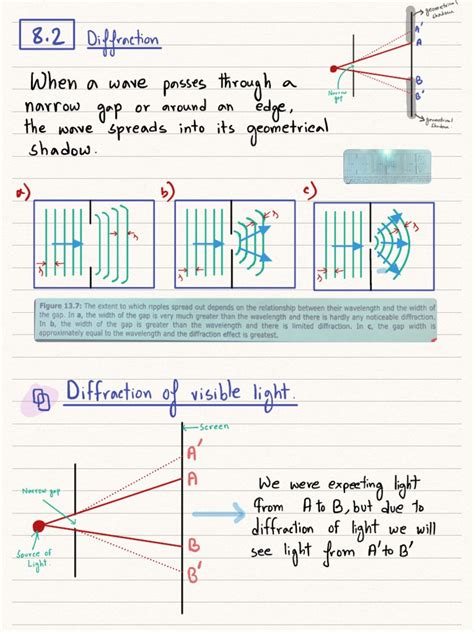 8.2 Diffraction
geometrical
shadow.
A'
A
B
B'
Narrow
gap
geometrical
shadow.
When a wave passes through a
narrow gap or around an edge,
the wave spreads into its geometrical
shadow.
a) b) c)
λ λ λ λ λ λ
Figure 13.7: The extent to which ripples spread out depends on the relationship between their wavelength and the width of
the gap. In a, the width of the gap is very much greater than the wavelength and there is hardly any noticeable diffraction.
In b, the width of the gap is greater than the wavelength and there is limited diffraction. In c, the gap width is
approximately equal to the wavelength and the diffraction effect is greatest.
Diffraction of visible light.
Screen
A'
Narrow gap
A
Source of
Light.
B
B'
We were expecting light
from A to B, but due to
diffraction of light we will
see light from A' to B'